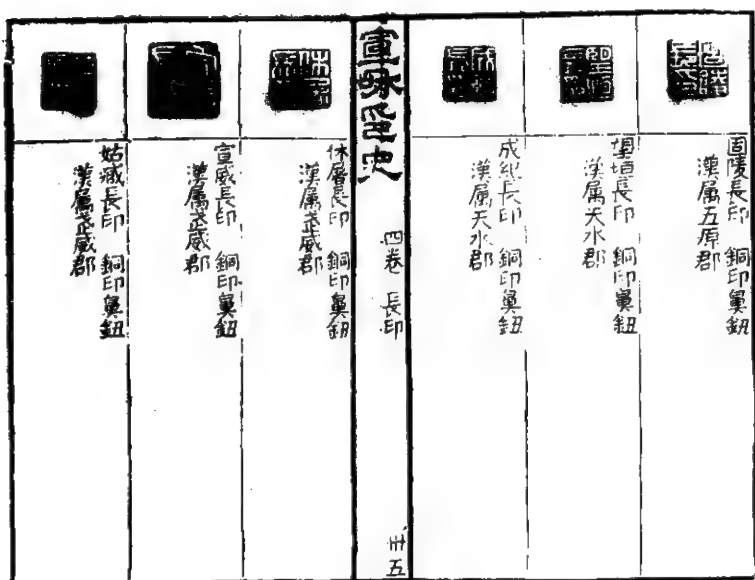 固陵長印　銅印鼻鈕
漢属五原郡
望垣長印　銅印鼻鈕
漢属天水郡
成紀長印　銅印鼻鈕
漢属天水郡
宣和印史　四卷　長印　卅五
休屠長印　銅印鼻鈕
漢属武威郡
宣威長印　銅印鼻鈕
漢属武威郡
姑臧長印　銅印鼻鈕
漢属武威郡